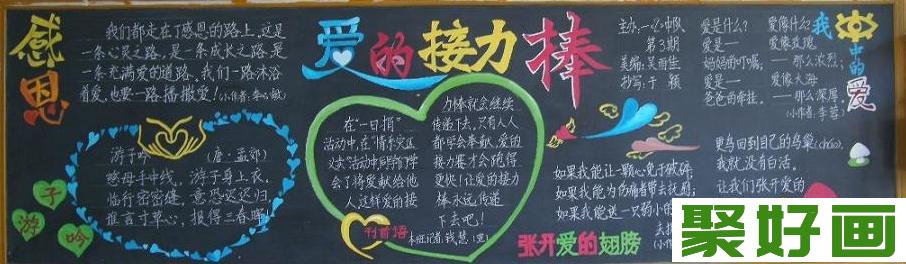 感恩
我们都走在了感恩的路上,这是
一条心灵之路,是一条成长之路,是
一条充满爱的道路,我们一路沐浴
着爱,也要一路播撒爱!
游子吟
游子吟 (唐·孟郊)
慈母手中线,游子身上衣。
临行密密缝,意恐迟迟归。
谁言寸草心,报得三春晖
爱的接力棒
在“一日捐”
活动中,在
会了将爱献给他
人,这样爱的接
力棒就会继续
传递下去。只有人人
都学会奉献,爱的
接力赛才会跑得
更快!让爱的接力
棒永远传递
下去吧!
刊首语
主办:一(2)中队
第3期
美编:吴雨生
抄写:于颖
我
中的爱
爱是什么?
爱是—
妈妈的叮嘱;
爱是—
爸爸的牵挂。
爱像什么?
爱像玫瑰
—那么浓烈;
爱像大海
—那么深厚。
(小作者:李蓉)
如果我能让一颗心免于破碎;
如果我能为伤痛者带去抚慰;
如果我能送一只弱小的
更鸟回到自己的鸟巢(cháo),
我就没有白活。
让我们张开爱的
张开爱的翅膀
聚好画